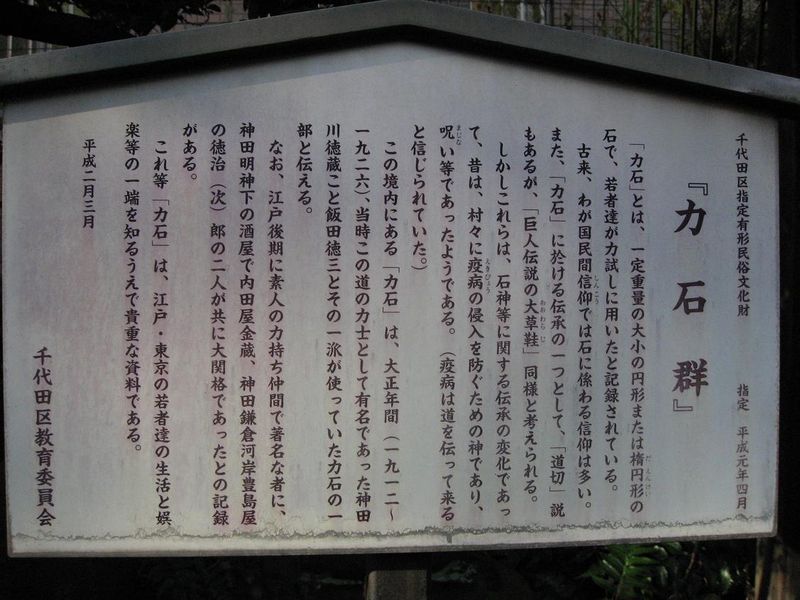 千代田区指定有形民俗文化財
指定 平成元年四月
『力石群』
「力石」とは、一定重量の大小の円形または楕円形の
だえんけい
石で、若者達が力試しに用いたと記録されている。
古来、わが国民間信仰では石に係わる信仰は多い。
しんこう
また、「力石」に於ける伝承の一つとして、「道切」説
もあるが、「巨人伝説の大草鞋」同様と考えられる。
おおわらじ
しかしこれらは、石神等に関する伝承の変化であっ
て、昔は、村々に疫病の侵入を防ぐための神であり、
えきびょう
呪い等であったようである。（疫病は道を伝って来る
まじな
と信じられていた。）
この境内にある「力石」は、大正年間（一九一二〜
一九二六）、当時この道の力士として有名であった神田
川徳蔵こと飯田徳三とその一派が使っていた力石の一
部と伝える。
なお、江戸後期に素人の力持ち仲間で著名な者に、
神田明神下の酒屋で内田屋金蔵、神田鎌倉河岸豊島屋
の徳治（次）郎の二人が共に大関格であったとの記録
がある。
これ等「力石」は、江戸・東京の若者達の生活と娯
楽等の一端を知るうえで貴重な資料である。
平成二月三月
千代田区教育委員会